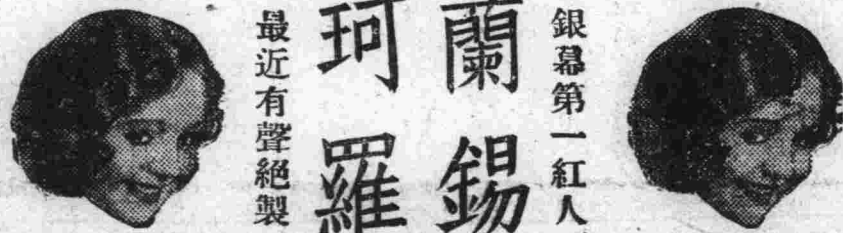 銀幕第一紅人
蘭錫
珂羅
最近有聲絕製